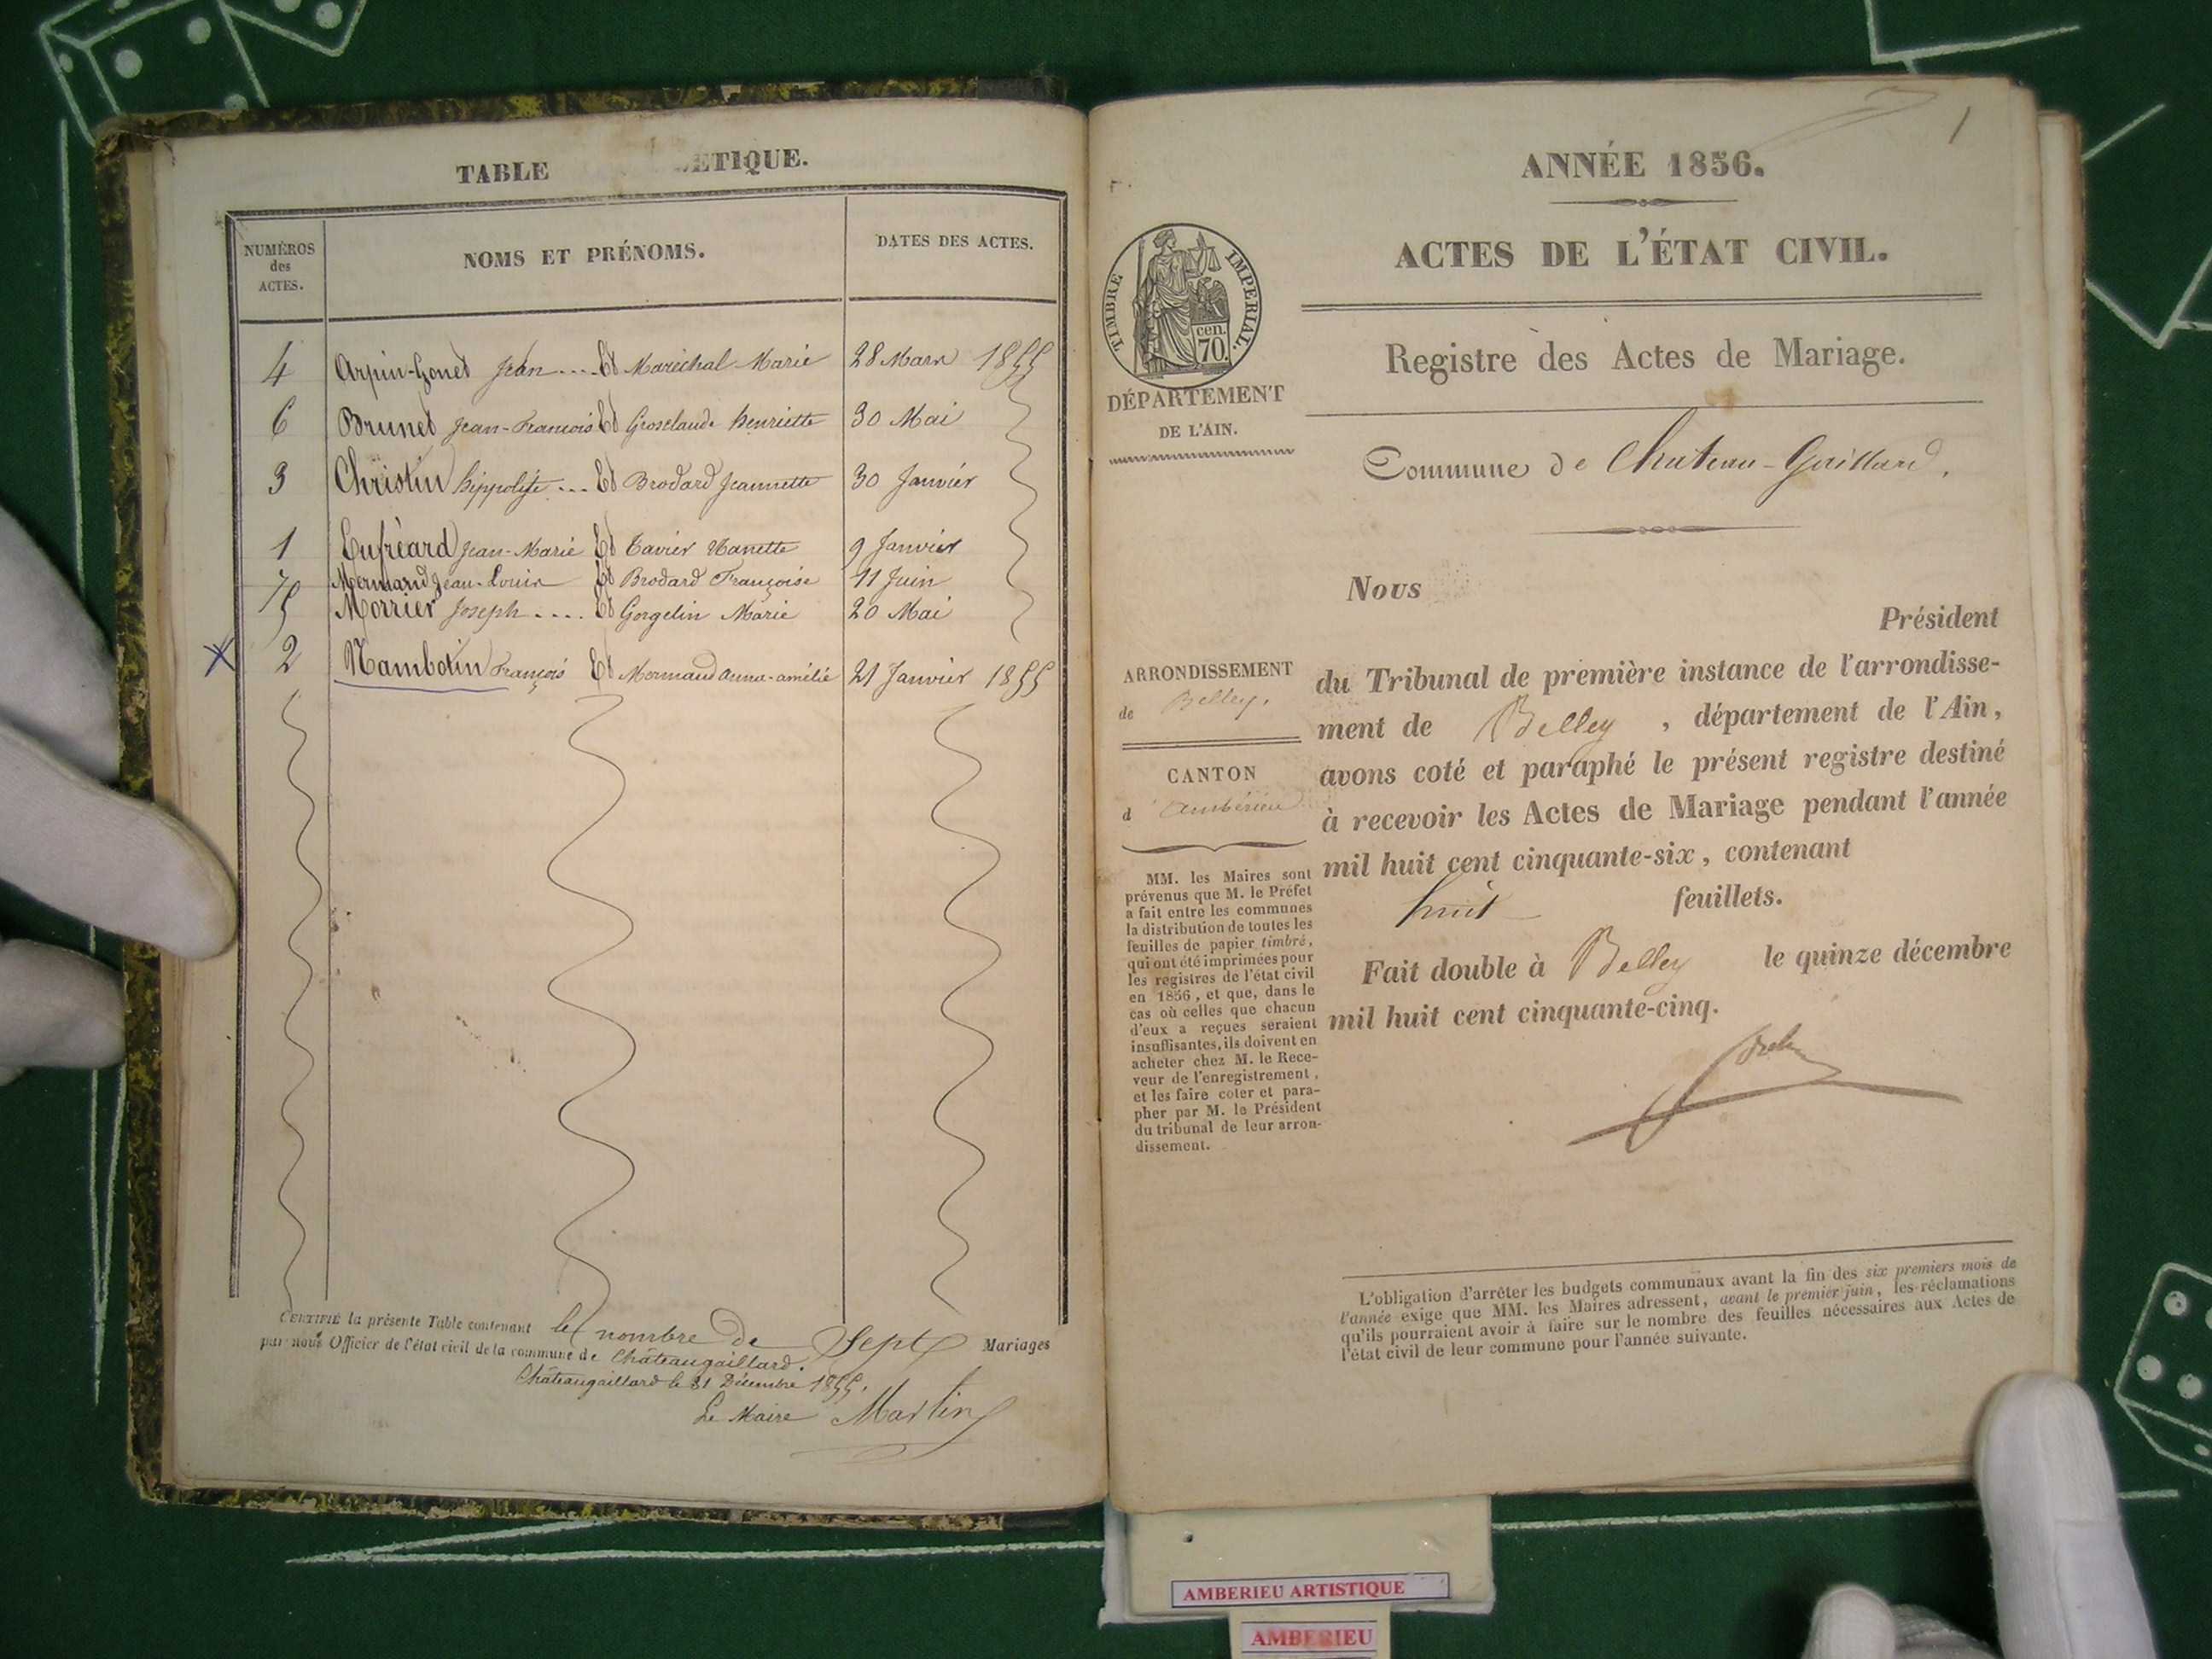 TABLE ETIQUE.
NUMÉROS
des
ACTES.
NOMS ET PRÉNOMS.
DATES DES ACTES.
4 Arpin-Gonet Jean .... Et Maréchal Marie 28 Mars 1855
6 Brunet Jean-François Et Grosclaude henriette 30 Mai
3 Christin hippolite ... Et Brodard Jeannette 30 Janvier
1 Lufréard Jean-Marie Et Tavier Nanette 9 Janvier
7 Mermand Jean-Louis Et Brodard Françoise 11 Juin
5 Morrier Joseph .... Et Gorgelin Marie 20 Mai
X 2 Nambotin François Et Mermand anna-amélie 21 Janvier 1855
CERTIFIÉ la présente Table contenant le nombre de Sept Mariages
par nous Officier de l'état civil de la commune de Châteaugaillard.
Châteaugaillard le 31 Décembre 1855.
Le Maire Martin
1
ANNÉE 1856.
ACTES DE L'ÉTAT CIVIL.
TIMBRE IMPÉRIAL.
cen.
70.
Registre des Actes de Mariage.
DÉPARTEMENT
DE L'AIN.
Commune de Chateau-Gaillard.
Nous
Président
ARRONDISSEMENT
de Belley.
CANTON
d'Ambérieu
du Tribunal de première instance de l'arrondisse-
ment de Belley, département de l'Ain,
avons coté et paraphé le présent registre destiné
à recevoir les Actes de Mariage pendant l'année
mil huit cent cinquante-six, contenant
huit feuillets.
Fait double à Belley le quinze décembre
mil huit cent cinquante-cinq.
MM. les Maires sont
prévenus que M. le Préfet
a fait entre les communes
la distribution de toutes les
feuilles de papier timbré,
qui ont été imprimées pour
les registres de l'état civil
en 1856, et que, dans le
cas où celles que chacun
d'eux a reçues seraient
insuffisantes, ils doivent en
acheter chez M. le Rece-
veur de l'enregistrement,
et les faire coter et para-
pher par M. le Président
du tribunal de leur arron-
dissement.
L'obligation d'arrêter les budgets communaux avant la fin des six premiers mois de
l'année exige que MM. les Maires adressent, avant le premier juin, les réclamations
qu'ils pourraient avoir à faire sur le nombre des feuilles nécessaires aux Actes de
l'état civil de leur commune pour l'année suivante.
AMBERIEU ARTISTIQUE
AMBERIEU